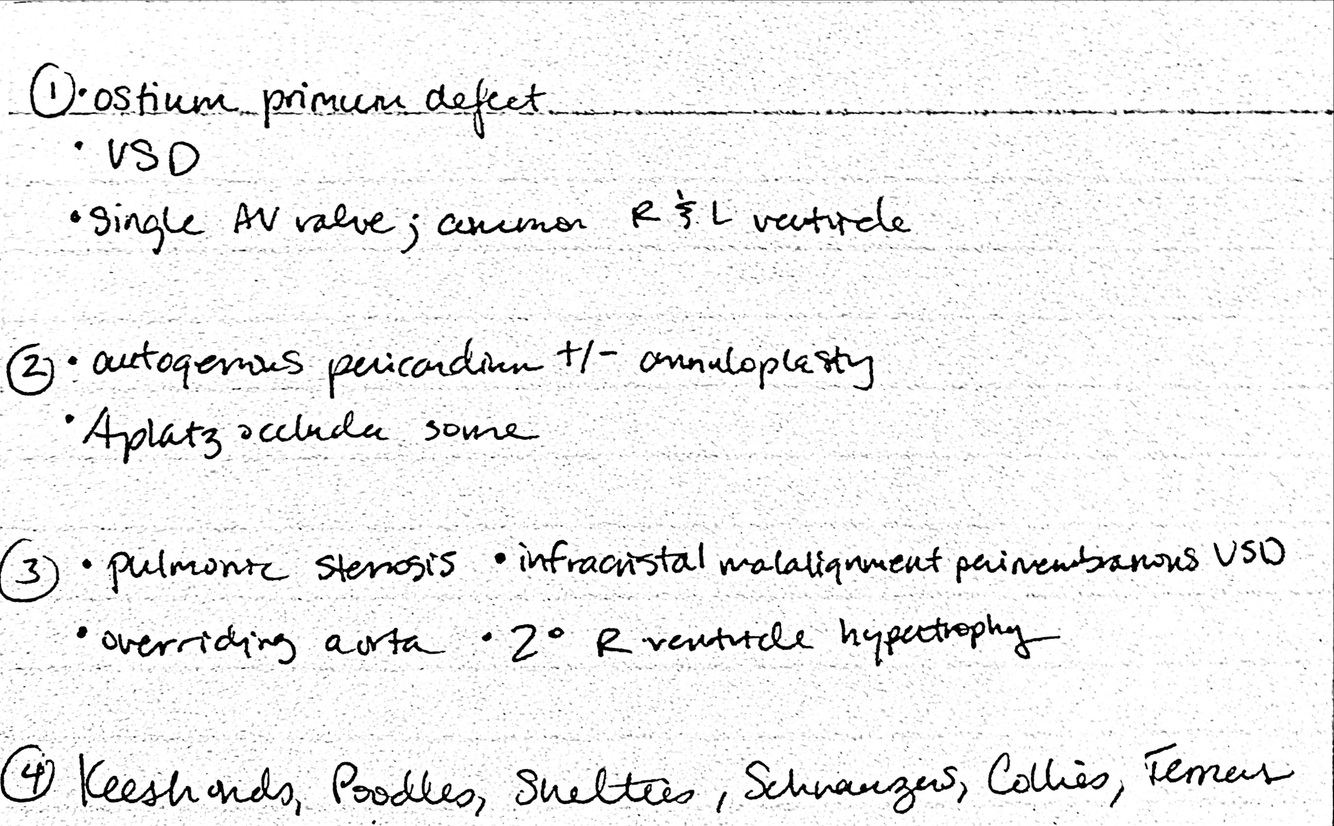 ① • ostium primum defect
• VSD
• Single AV valve; common R & L ventricle
② • autogenous pericardium +/- annuloplasty
• Aplatz occluder some
③ • pulmonic stenosis • infracristal malalignment perimembranous VSD
• overriding aorta • 2° R ventricle hypertrophy
④ Keeshonds, Poodles, Shelties, Schnauzers, Collies, Terriers